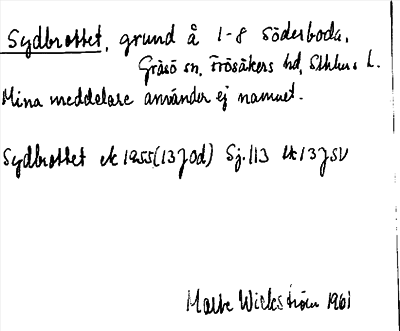 Sydbrottet, grund å 1-8 Söderboda,
Gräsö sn, Frösåkers hd, Sthlms L.
Mina meddelare använder ej namnet.
Sydbrottet ek 1955 (13 J 0d) Sj. 113 13 J SV
Malte Wickström 1961